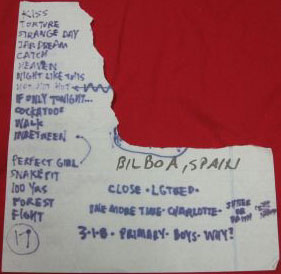 KISS
TORTURE
STRANGE DAY
JAP DREAM
CATCH
HEAVEN
NIGHT LIKE THIS
HOT HOT HOT
IF ONLY TONIGHT...
COCKATOO
WALK
INBETWEEN
BILBOA, SPAIN
PERFECT GIRL
SNAKEPIT
100 YRS
FOREST
FIGHT
CLOSE - LGTBED -
ONE MORE TIME - CHARLOTTE -
17
3-1-8 - PRIMARY - BOYS - WHY?